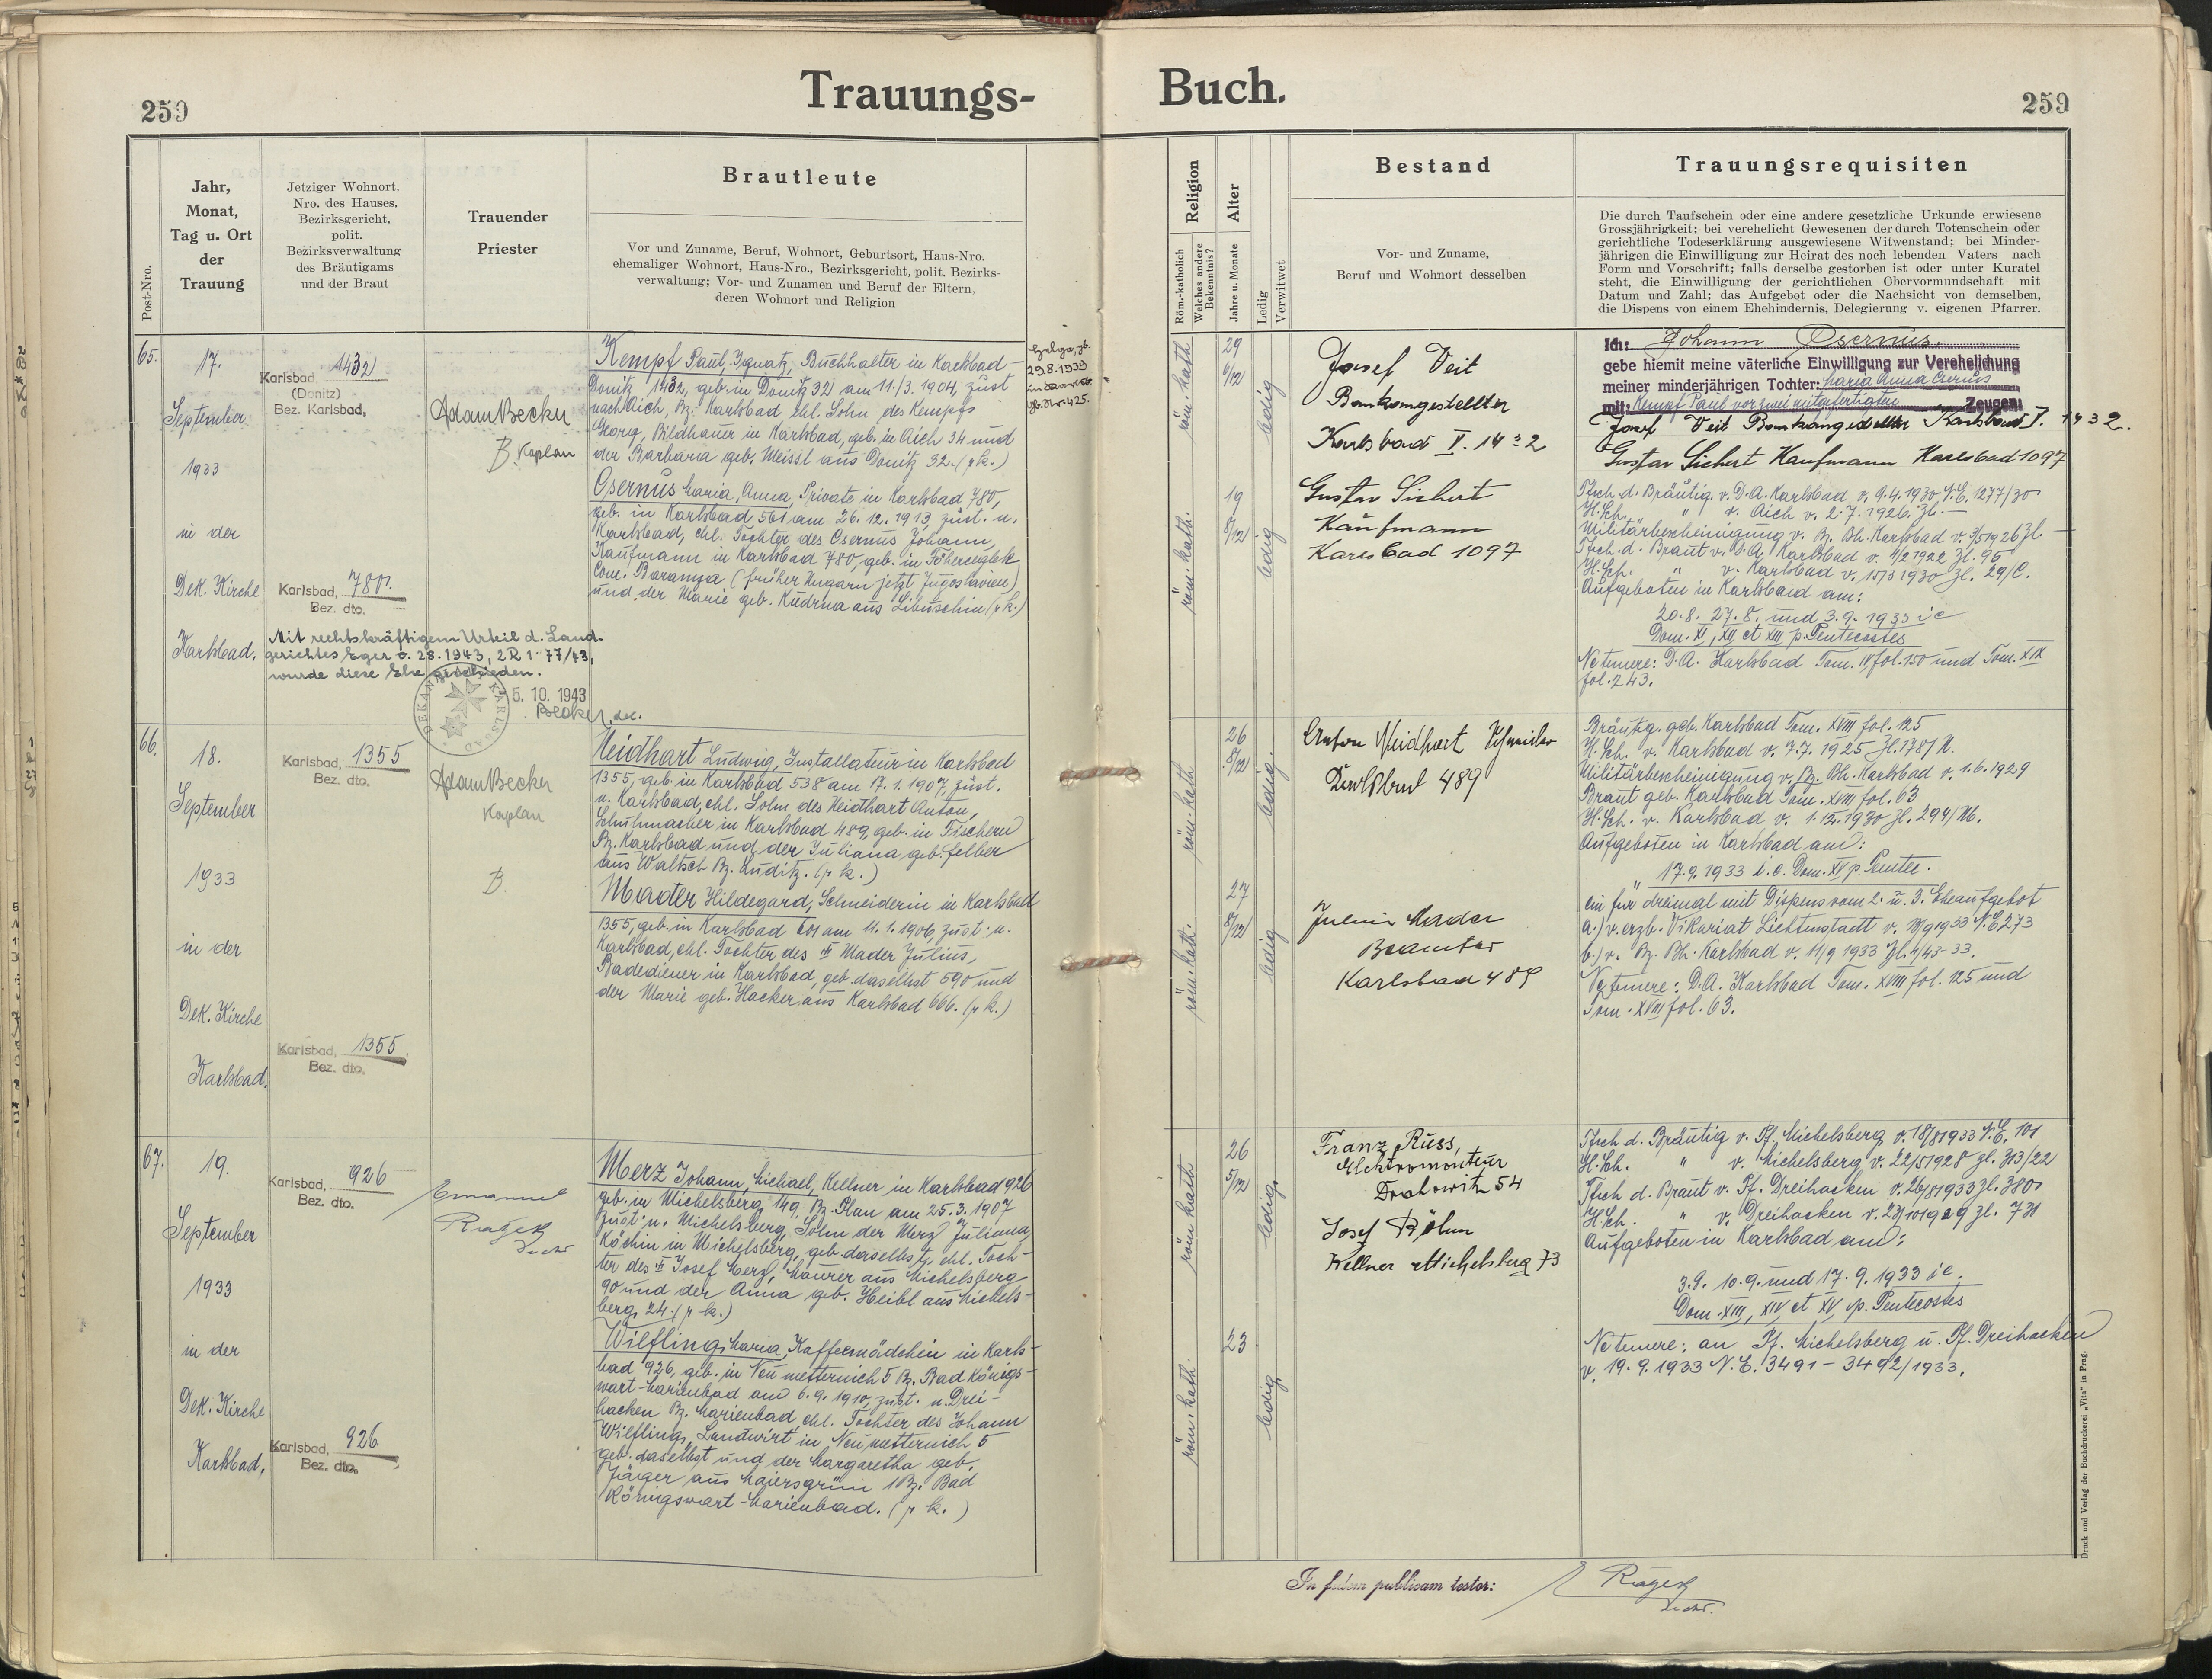 259
Trauungs-
Post-Nro.
Jahr,
Monat,
Tag u. Ort
der
Trauung
Jetziger Wohnort,
Nro. des Hauses,
Bezirksgericht,
polit.
Bezirksverwaltung
des Bräutigams
und der Braut
Trauender
Priester
Brautleute
Vor und Zuname, Beruf, Wohnort, Geburtsort, Haus-Nro.
ehemaliger Wohnort, Haus-Nro., Bezirksgericht, polit. Bezirks-
verwaltung; Vor- und Zunamen und Beruf der Eltern,
deren Wohnort und Religion
65.
17.
September
1933
in der
Dek. Kirche
Karlsbad.
Karlsbad, 1432
(Donitz)
Bez. Karlsbad.
Karlsbad, 780.
Bez. dto.
Mit rechtskräftigem Urteil d. Land-
gerichtes Eger v. 28.1943, 2R 1-77/43,
wurde diese Ehe geschieden.
5. 10. 1943
DEKANAT KARLSBAD
Adam Becker
B. Kaplan
Kempf Paul, Ignatz, Buchhalter in Karlsbad-
Donitz 1432, geb. in Donitz 32 am 11./3. 1904, zust.
nach Aich, Bz. Karlsbad ehl. Sohn des Kempfs
Georg, Bildhauer in Karlsbad, geb. in Aich 34 und
der Barbara geb. Meissl aus Donitz 32. (r k.)
Csernus Maria, Anna, Private in Karlsbad 780,
geb. in Karlsbad 561 am 26. 12. 1913, zust. n.
Karlsbad, ehl. Tochter des Csernus Johann,
Kaufmann in Karlsbad 780, geb. in
Com. Baranya (früher Ungarn jetzt Jugoslavien)
und der Marie geb. Kudrna aus Libuschin (r k.)
Helga, gb.
29.8.1939
66.
18.
September
1933
in der
Dek. Kirche
Karlsbad.
Karlsbad, 1355
Bez. dto.
Karlsbad, 1355.
Bez. dto.
Adam Becker
Kaplan
B.
Neidhart Ludwig, Installateur in Karlsbad
1355, geb. in Karlsbad 538 am 17. 1. 1907, zust.
n. Karlsbad, ehl. Sohn des Neidhart Anton,
Schuhmacher in Karlsbad 489, geb. in Fischern
Bz. Karlsbad und der Juliana geb. Felber
aus Waltsch Bz. Luditz. (r k.)
Mader Hildegard, Schneiderin in Karlsbad
1355, geb. in Karlsbad am 11. 1. 1906, zust. n.
Karlsbad, ehl. Tochter des Mader Julius,
Badediener in Karlsbad, geb. daselbst 590 und
der Marie geb. Hacker aus Karlsbad 666. (r k.)
67.
19.
September
1933
in der
Dek. Kirche
Karlsbad,
Karlsbad, 926
Bez. dto.
Karlsbad, 926
Bez. dto.
Emanuel
Merz Johann, Michael, Kellner in Karlsbad 926
geb. in Michelsberg 149, Bz. Plan am 25. 3. 1907
zust. n. Michelsberg, Sohn der Merz Juliana,
Köchin in Michelsberg, geb. daselbst, ehl. Toch-
ter des Josef Merz, Maurer aus Michelsberg
90 und der Anna geb. Heibl aus Michels-
berg 24. (r k.)
Wilfling Maria, Kaffeemädchen in Karls-
bad 926, geb. in Neumetternich 5 Bz. Bad Königs-
wart-Marienbad am 6. 9. 1910, zust. n. Drei-
hacken Bz. Marienbad, ehl. Tochter des Johann
Wilfling, Landwirt in Neumetternich 5
geb. daselbst und der Margaretha geb.
Jäger aus Maiersgrün Bz. Bad
Königswart-Marienbad. (r k.)
Buch.
259
Religion
Röm.-katholisch
Welches andere
Bekenntnis?
Alter
Jahre u. Monate
Ledig
Verwitwet
Bestand
Vor- und Zuname,
Beruf und Wohnort desselben
Trauungsrequisiten
Die durch Taufschein oder eine andere gesetzliche Urkunde erwiesene
Grossjährigkeit; bei verehelicht Gewesenen der durch Totenschein oder
gerichtliche Todeserklärung ausgewiesene Witwenstand; bei Minder-
jährigen die Einwilligung zur Heirat des noch lebenden Vaters nach
Form und Vorschrift; falls derselbe gestorben ist oder unter Kuratel
steht, die Einwilligung der gerichtlichen Obervormundschaft mit
Datum und Zahl; das Aufgebot oder die Nachsicht von demselben,
die Dispens von einem Ehehindernis, Delegierung v. eigenen Pfarrer.
röm. kath.
29
6/12
ledig
Josef Veit
Bankangestellter
Karlsbad V. 1432
röm. kath.
19
8/12
ledig
Gustav Sichert
Kaufmann
Karlsbad 1097
Ich: Johann Csernus.
gebe hiemit meine väterliche Einwilligung zur Verehelichung
meiner minderjährigen Tochter: Maria Anna Csernus
mit: Kempf Paul vor zwei mitgefertigten Zeugen:
Josef Veit Bankangestellter Karlsbad V. 1432.
Gustav Sichert Kaufmann Karlsbad 1097
Tsch. d. Bräutig. v. D. A. Karlsbad v. 9.4.1930, N.E. 1277/30
H.Sch. " v. Aich v. 2.7.1926. Zl. —
Militärbescheinigung v. Bz. Bh. Karlsbad v. 3/5 1926 Zl. —
Tsch. d. Braut v. D. A. Karlsbad v. 4/2 1922 Zl. 95
H.Sch. " v. Karlsbad v. 15/3 1930 Zl. 29/C.
Aufgeboten in Karlsbad am:
20.8. 27.8. und 3.9. 1933 ie
Dom. XI, XII et XIII p. Pentecostes
Ne temere: D. A. Karlsbad Tom. IV fol. 150 und Tom. XIX
fol. 243.
röm. kath
26
8/12
ledig.
Anton Neidhart Schneider
Karlsbad 489
röm. kath.
27
8/12
ledig
Julius Mader
Beamter
Karlsbad 489
Bräutig. geb. Karlsbad Tom. XVIII fol. 125
H.Sch. v. Karlsbad v. 7.7. 1925 Zl. 1781 N.
Militärbescheinigung v. Bz. Bh. Karlsbad v. 1.6.1929
Braut geb. Karlsbad Tom. XVIII fol. 63
H.Sch. v. Karlsbad v. 1.12.1930 Zl. 294/M.
Aufgeboten in Karlsbad am:
17.9. 1933 i. e. Dom. XV p. Pentec.
ein für dreimal mit Dispens vom 2. u. 3. Eheaufgebot
a.) v. erzb. Vikariat Lichtenstadt v. 11/9 1933 N.E. 273
b.) v. Bz. Bh. Karlsbad v. 11/9 1933 Zl. 4/43-33.
Ne temere: D. A. Karlsbad Tom. XVIII fol. 125 und
Tom. XVIII fol. 63.
röm kath
26
5/12
ledig.
Franz Russ,
Elektromonteur
Drahowitz 54
Josef Böhm
Kellner Michelsberg 73
röm. kath.
23
ledig
Tsch d. Bräutig v. Pf. Michelsberg v. 18/8 1933 N.E. 101
H.Sch. " v. Michelsberg v. 22/5 1928 Zl. 313/22
Tsch d. Braut v. Pf. Dreihacken v. 26/8 1933 Zl. 380
H.Sch. " v. Dreihacken v. 23/10 1929 Zl. 731
Aufgeboten in Karlsbad am:
3.9. 10.9. und 17. 9. 1933 ie.
Dom. XIII, XIV et XV p. Pentecostes
Ne temere: an Pf. Michelsberg u. Pf. Dreihacken
v. 19. 9. 1933 N. E. 3491 – 3492/1933.
In fidem publicam testor:
Druck und Verlag der Buchdruckerei „Vita" in Prag.